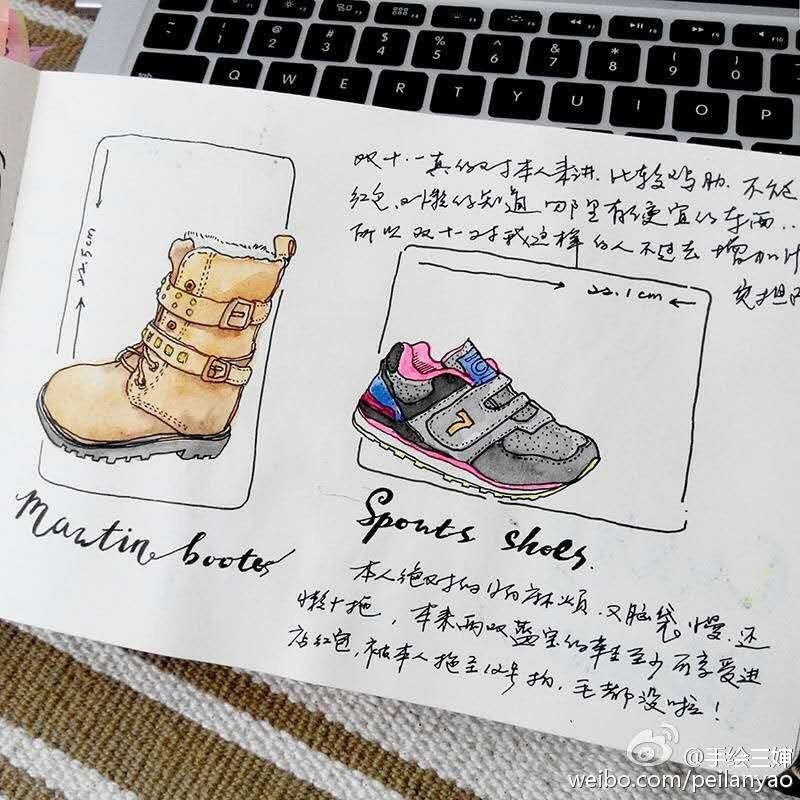 双十一真的对于本人来讲.比较鸡肋.不知
红包.只能的知道哪里有便宜的东西..
所以双十一对我这样的人不过去增加
22.5cm
22.1cm
7
Martin bootes
Spouts shoes.
本人绝对的怕麻烦.又脑袋慢.还
懒+拖,本来两双蓝宝的鞋至少可享受进
店红包,被本人拖至12号拍,毛都没啦!
@手绘三婶
weibo.com/peilanyao
Q W E R T Y U I O P